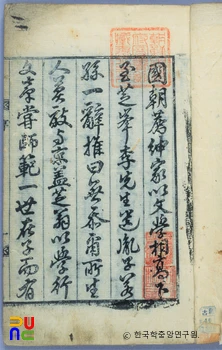 國朝薦紳家以文學相高下
至芝峯李先生逮胤子若
孫一辭推曰無忝爾所生
人莫敢与盖芝翁以學行
文章嘗師範一世在子而有
© 한국학중앙연구원